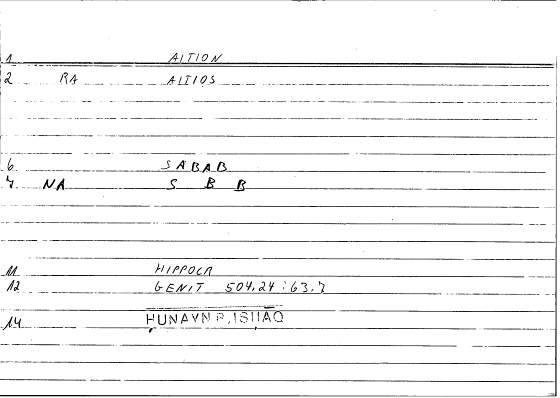 1 AITION
2 RA AITIOS
6 SABAB
7 NA S B B
11 HIPPOCR
12 GENIT 504,24 : 63.7
14 ḤUNAYN B. ISḤĀQ